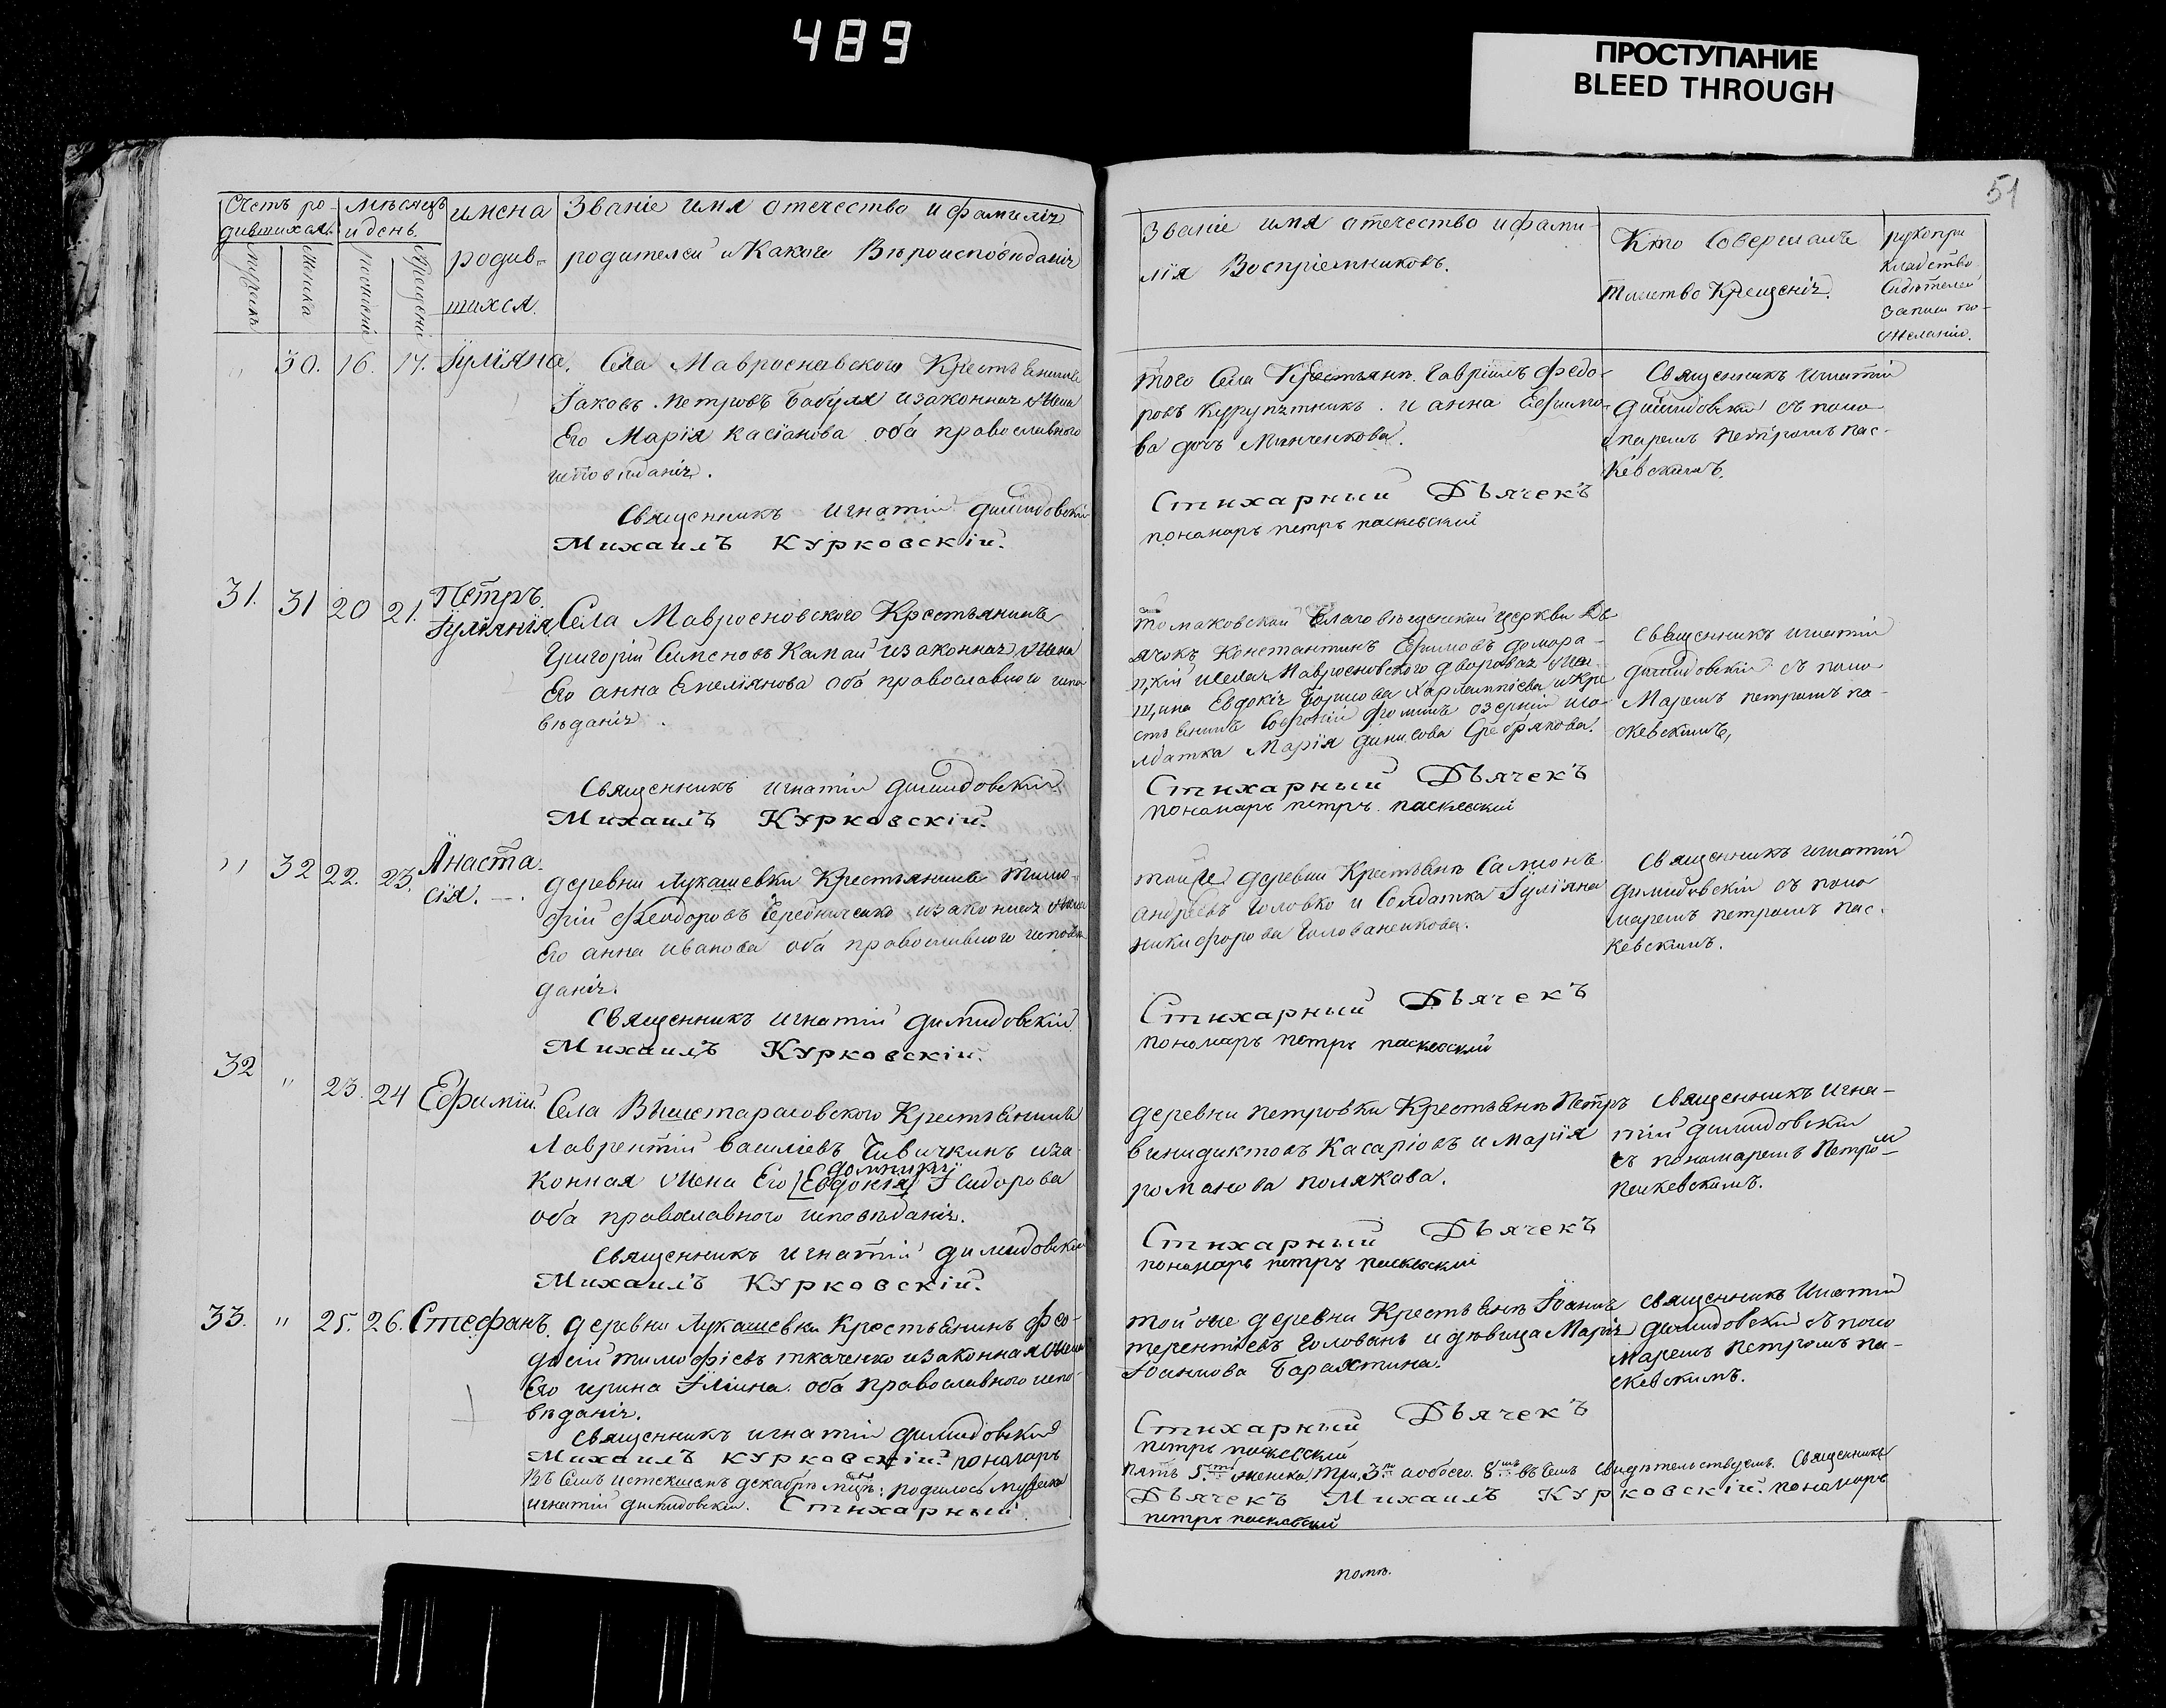 489
ПРОСТУПАНИЕ
BLEED THROUGH
51
Счетъ ро-
дившихся.
Мѣсяцъ
и день.
имена
родив-
шихся.
Званіе имя отечество и фамилія
родителей и Какого Вѣроисповѣданія
Мужеска
Женска
рожденіе
Крещеніе
Званіе имя отечество и фами-
лія Воспріемниковъ.
Кто Совершалъ
таинство Крещенія.
рукопри
кладство
Свидѣтелей
записи по-
желанію.
" 30. 16. 17. Іуліяна.
Села Навроснавского Крестьянинъ
Іаковъ Петровъ Бабуля и законная жена
Его Марія Касіанова оба православного
исповѣданія.
Священникъ Игнатій Димидовскій
Михаилъ Курковскій.
того Села Крестьянп. Гавріилъ Федо-
ровъ Курупятникъ. и анна Ефимо-
ва дочь Минченкова.
Стихарный Дьячекъ
пономаръ петръ паскевский
Священникъ Игнатій
Димидовскій съ поно
маремъ Петромъ пас-
кевскимъ.
31. 31 20 21. Петръ.
Іуліянія
Села Мавросновского Крестьянинъ
Григорій Сименовъ Капай и законная жена
Его анна Емеліянова оба православного испо
вѣданія.
Священникъ Игнатій Димидовскій
Михаилъ Курковскій.
томаковской Благовѣщенской церкви Дь
ячокъ Константинъ Ефимовъ домора-
цкій и села Мавросновского дворовая жен-
щина Евдокія Борисова Харлампіева и Кре
стьянинъ Софроній Фоминъ озерній и со-
лдатка Марія Динисова Сребрякова.
Стихарный Дьячекъ
пономаръ петръ паскевский
Священникъ Игнатій
Димидовскій съ поно
маремъ петромъ па-
скевскимъ,
" 32 22. 23. Анаста-
сія.
деревни Лукашевки Крестьянинъ Тимо-
фій Феодоровъ Чередниченко и законная жена
Его анна иванова оба православного исповѣ
данія.
Священникъ Игнатій Димидовскій
Михаилъ Курковскій.
тойже деревни Крестьянп Самсонъ
Андреевъ Головко и Солдатка Іуліяна
никифорова Голованенкова.
Стихарный Дьячекъ
пономаръ петръ паскевский
Священникъ Игнатій
Димидовскій съ поно
маремъ петромъ пас-
кевскимъ.
32 " 23. 24 Ефимій.
Села Вышетарасовского Крестьянинъ
Лаврентій Василіевъ Чивичкинъ и за-
домникія
конная жена Его [Евдокія] Ісидорова
оба православного исповѣданія.
Священникъ Игнатій Димидовскій
Михаилъ Курковскій.
деревни петровки Крестьянп Петръ
винидиктовъ Касаріовъ и Марія
романова полякова.
Стихарный Дьячекъ
пономаръ петръ паскевский
Священникъ Игна-
тій Димидовскій
съ пономаремъ Петром
паскевскимъ.
33. " 25. 26. Стефанъ.
деревни Лукашевки Крестьянинъ Фео-
досій тимофіевъ ткаченко и законная жена
Его ирина Іліина. оба православного испо-
вѣданія.
Священникъ Игнатій Димидовский
Михаилъ Курковскій. пономаръ
Въ Семъ истекшемъ декабрѣ мцѣ: родилось мужеска
игнатій димидовскій. Стихарный
той же деревни Крестьянп Іоаннъ
терентіевъ Головань и дѣвица Марія
Іоаннова Барахтина.
Стихарный Дьячекъ
петръ паскевский
пять 5. женска, три, 3. а обоего 8. въ Чемъ свидѣтельствуемъ. Священникъ
Дьячекъ Михаилъ Курковскій. пономаръ
петръ паскевский
Священникъ Игнатій
Димидовскій съ поно
маремъ петромъ па-
скевскимъ.